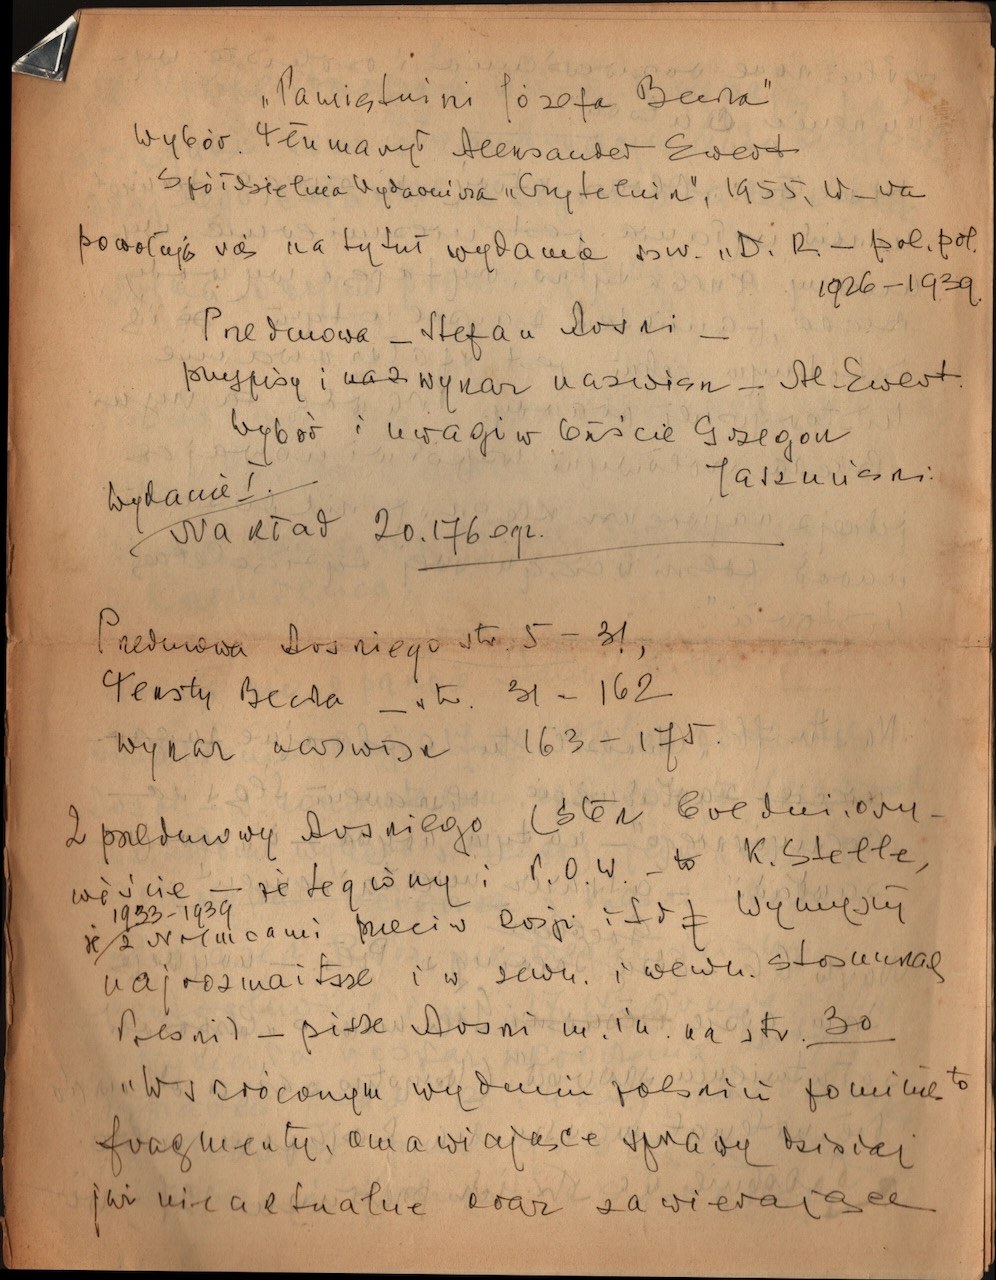 „Pamiętniki Józefa Becka"
Wybór. Tłumaczył Aleksander Ewert
Spółdzielnia Wydawnicza „Czytelnik", 1955, W-wa
powołuje się na tytuł wydania szw. „D. R. – pol. pol.
1926–1939.
Przedmowa – Stefan Arski –
przypisy i wykaz nazwisk – Al. Ewert.
Wybór i uwagi w tekście Grzegorz
Jaszuński.
Wydanie I.
Nakład 20.176 egz.
Przedmowa Arskiego str. 5 – 31,
Teksty Becka – str. 31 – 162
Wykaz nazwisk 163 – 175.
Z przedmowy Arskiego (stek
– że legiony i P.O.W. – to K. Stelle,
1933–1939
że z Niemcami przeciw Rosji i
najrozmaitsze i w zewn. i wewn. stosunkach
Polski) – pisze Arski m. in. na str. 30
„W skróconym wydaniu polskim pominięto
fragmenty, omawiające sprawy dzisiaj
już nieaktualne oraz zawierające